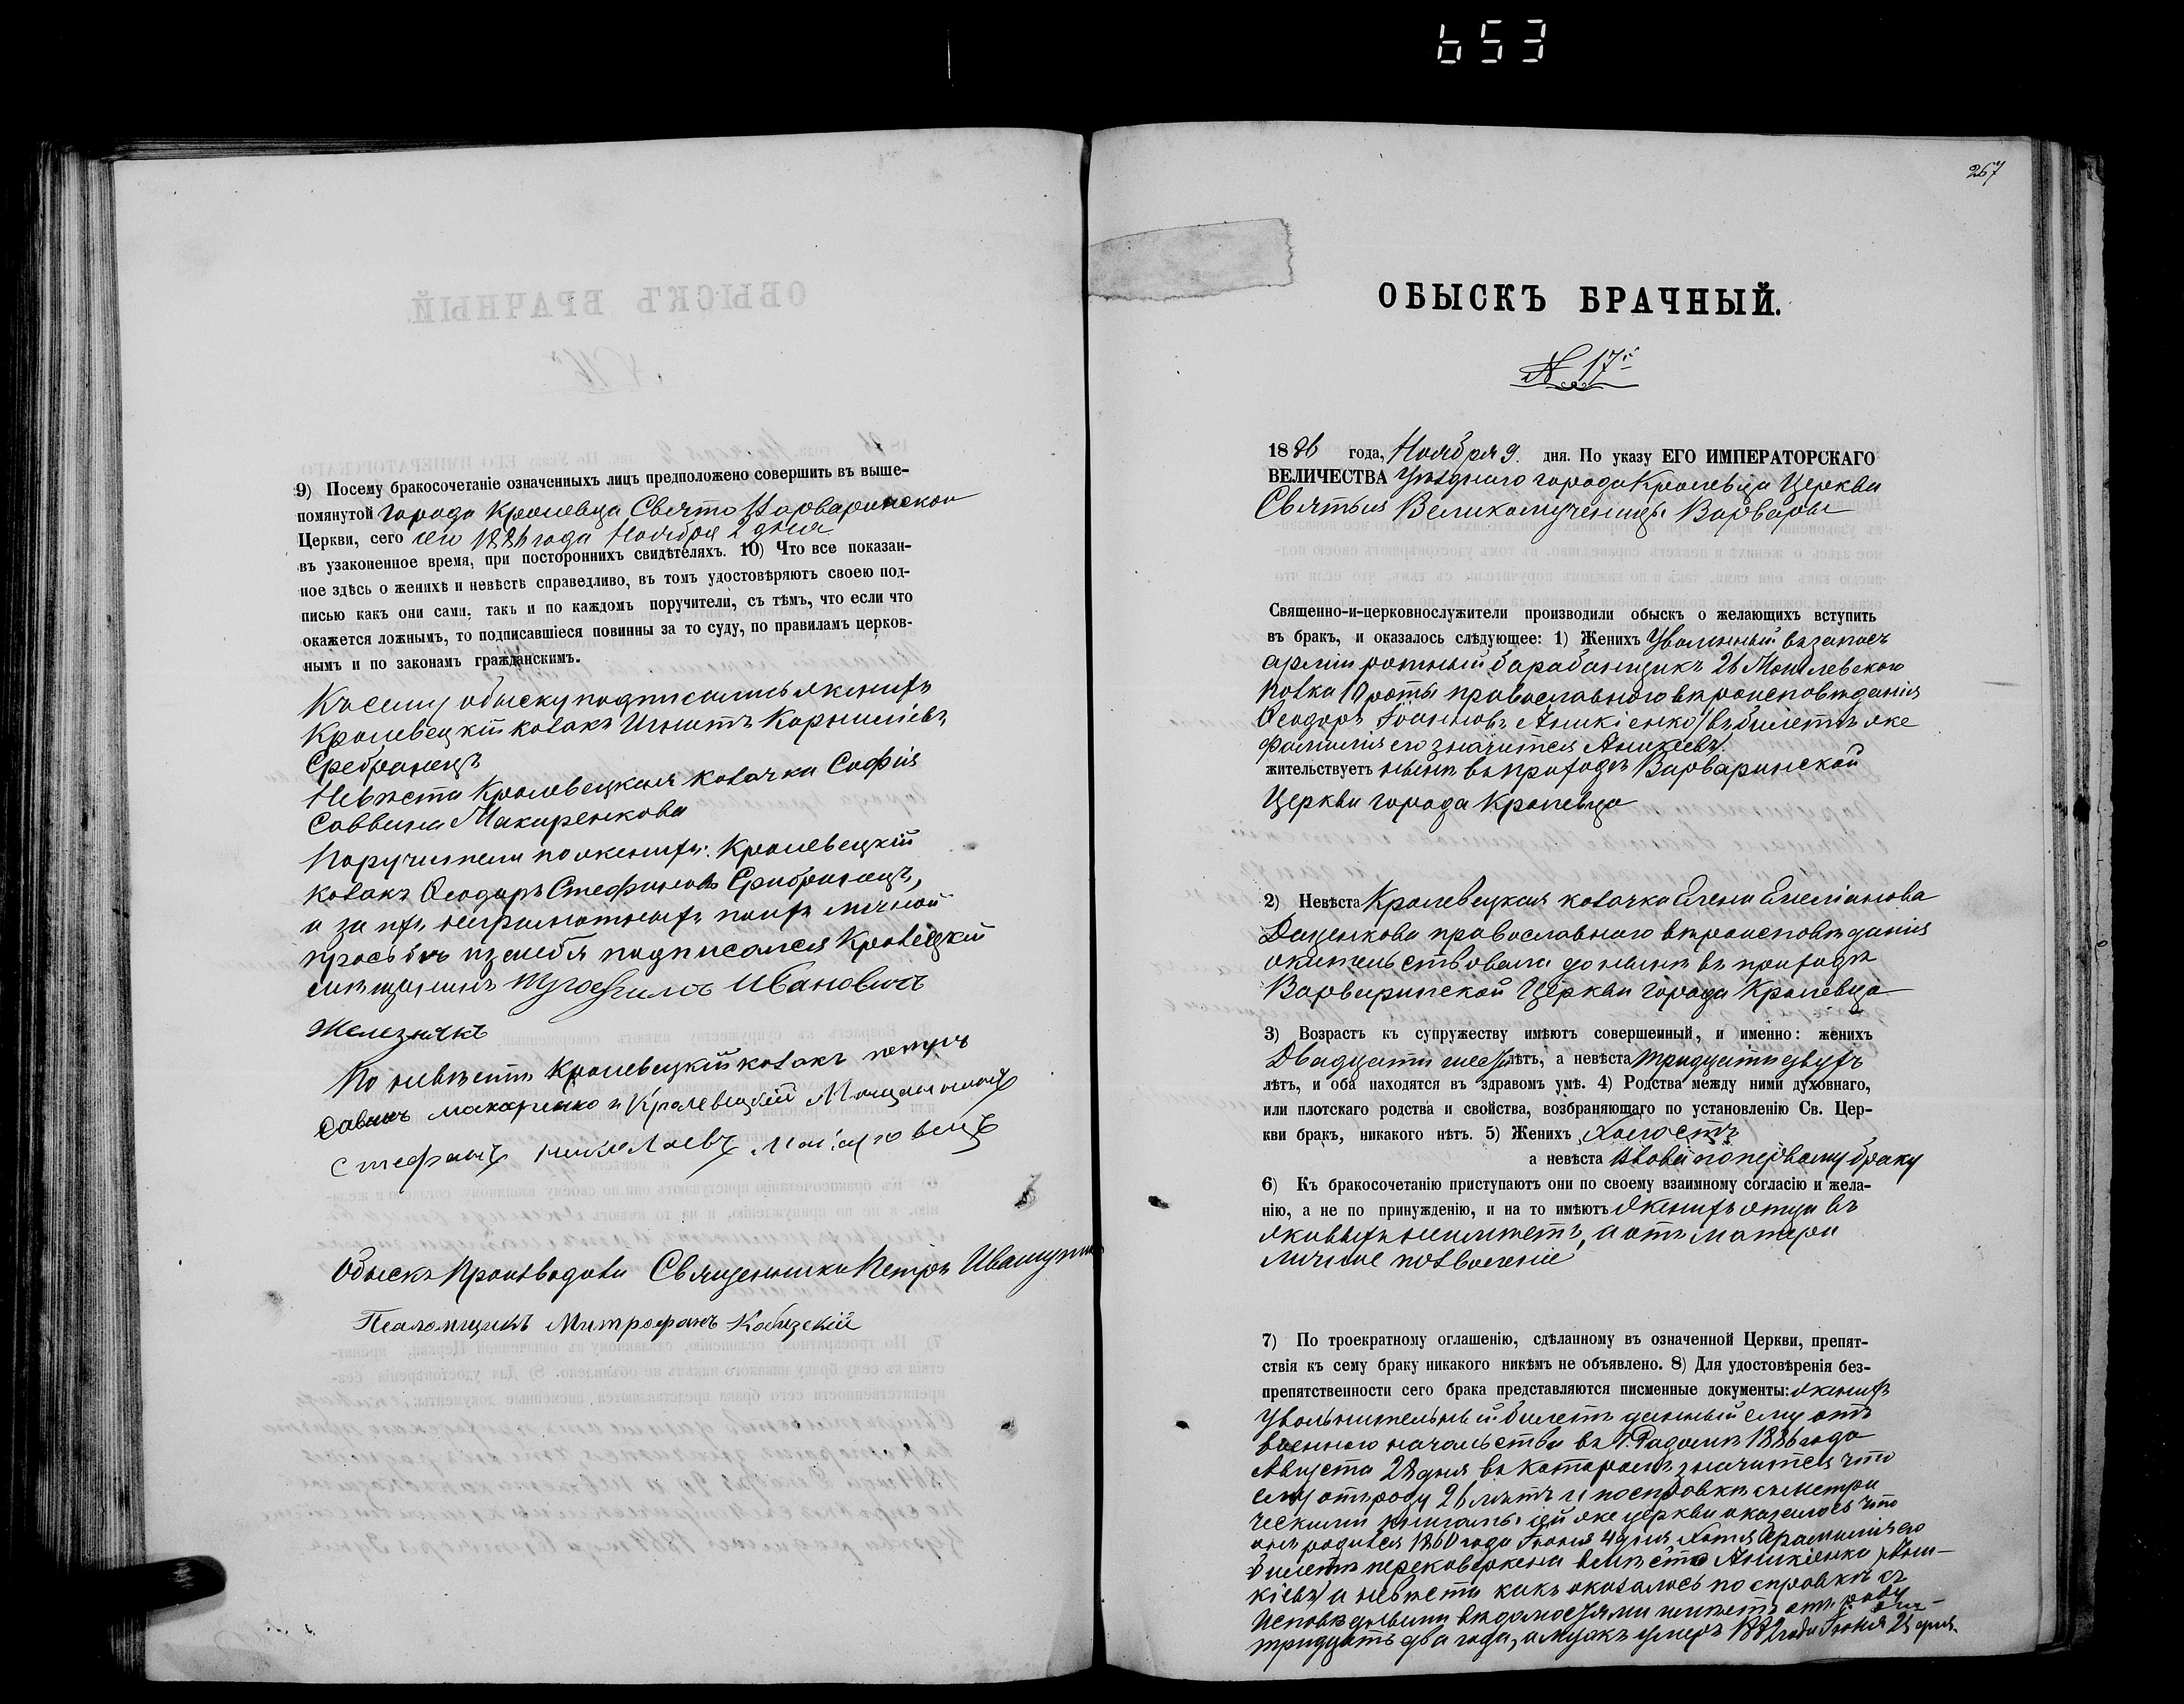 653
9) Посему бракосочетаніе означенныхъ лицъ предположено совершить въ выше-
помянутой города Кролевца Свято Варваринской
Церкви, сего сего 1886 года Ноября 2 дня
въ узаконенное время, при постороннихъ свидѣтеляхъ. 10) Что все показан-
ное здѣсь о женихѣ и невѣстѣ справедливо, въ томъ удостовѣряютъ своею под-
писью какъ они сами, такъ и по каждомъ поручители, съ тѣмъ, что если что
окажется ложнымъ, то подписавшіеся повинны за то суду, по правиламъ церков-
нымъ и по законамъ гражданскимъ.
Къ сему обыску подписались женихъ
Кролевецкій козакъ Игнатъ Корниліевъ
Сребранецъ
Невѣста Кролевецкая козачка Софія
Саввина Макаренкова
Поручители по женихѣ: Кролевецкій
козакъ Ѳеодоръ Стефановъ Сребранецъ,
а за ихъ неграмотныхъ по ихъ личной
прозьбѣ и за себя подписался Кролевецкій
мѣщанинъ Трофимъ Ивановичъ
Железнякъ
По невѣсте Кролевецкій козакъ петръ
савинъ макаренко и Кролевецкій Мещанинъ
стефанъ николаевъ
Обыскъ Производили Священникъ Петръ
Псаломщикъ Митрофанъ
267
ОБЫСКЪ БРАЧНЫЙ.
N 17й
1886 года, Ноября 9 дня. По указу ЕГО ИМПЕРАТОРСКАГО
ВЕЛИЧЕСТВА Уѣзднаго города Кролевца Церкви
Святыя Великомученицы Варвары
Священно-и-церковнослужители производили обыскъ о желающихъ вступить
въ бракъ, и оказалось слѣдующее: 1) Женихъ Уволенный въ запасъ
арміи ротный барабанщикъ 26 Могилевского
полка 10 роты православного вѣроисповѣданія
Ѳеодоръ Іоанновъ Аникіенко (въ билетѣ же
фамилія его значится Аникеевъ)
жительствуетъ нынѣ въ приходѣ Варваринской
Церкви города Кролевца
2) Невѣста Кролевецкая козачка Елена Емеліанова
Даценкова православного вѣроисповѣданія
жительствовала до нынѣ въ приходѣ
Варваринской Церкви города Кролевца
3) Возрастъ къ супружеству имѣютъ совершенный, и именно: женихъ
Двадцати шести лѣтъ, а невѣста тридцати двухъ
лѣтъ, и оба находятся въ здравомъ умѣ. 4) Родства между ними духовнаго,
или плотскаго родства и свойства, возбраняющаго по установленію Св. Цер-
кви бракъ, никакого нѣтъ. 5) Женихъ Холостъ
а невѣста Вдова по первому браку
6) Къ бракосочетанію приступаютъ они по своему взаимному согласію и жела-
нію, а не по принужденію, и на то имѣютъ женихъ отца въ
живыхъ неимѣетъ, а отъ матери
личное позволеніе
7) По троекратному оглашенію, сдѣланному въ означенной Церкви, препят-
ствія къ сему браку никакого никѣмъ не объявлено. 8) Для удостовѣренія без-
препятственности сего брака представляются писменные документы: женихъ
Увольнительный билетъ данный ему отъ
военного начальства въ г. Радомѣ 1886 года
Августа 28 дня въ которомъ значится что
ему отъ роду 26 лѣтъ и по справкѣ съ метри
ческими книгами сей же церкви оказалось что
онъ родился 1860 года Іюня 4 дня хотя фамилія его
билетѣ перековеркена вмѣсто Аникіенко Ани-
кіевъ а невѣста какъ оказалось по справкѣ съ
Исповѣдными вѣдомостями имѣетъ отъ роду
тридцать два года, а мужъ умеръ года Іюня дня